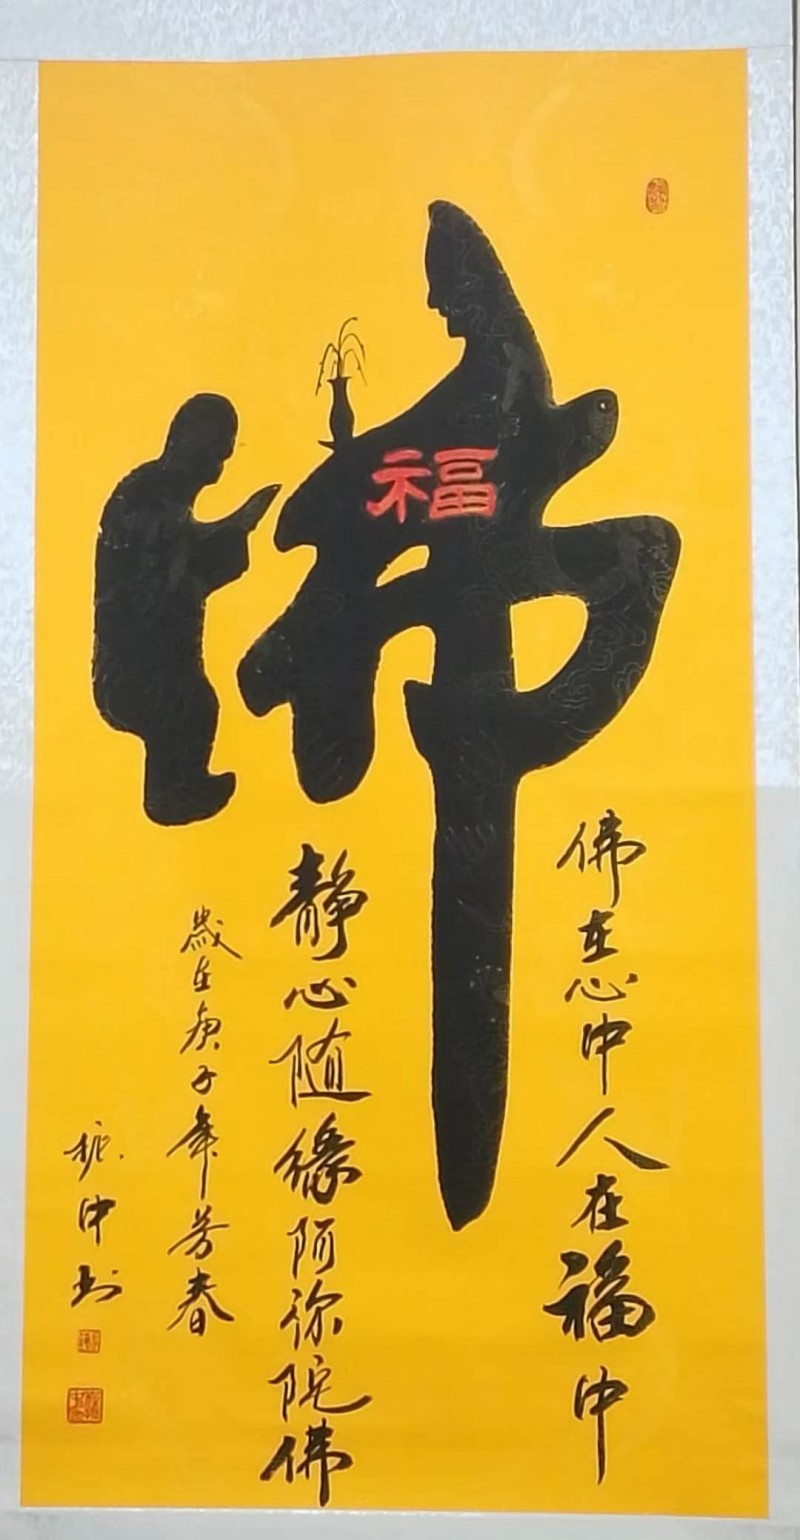 佛
福
佛在心中人在福中
静心随缘阿弥陀佛
岁在庚子年芳春
中书